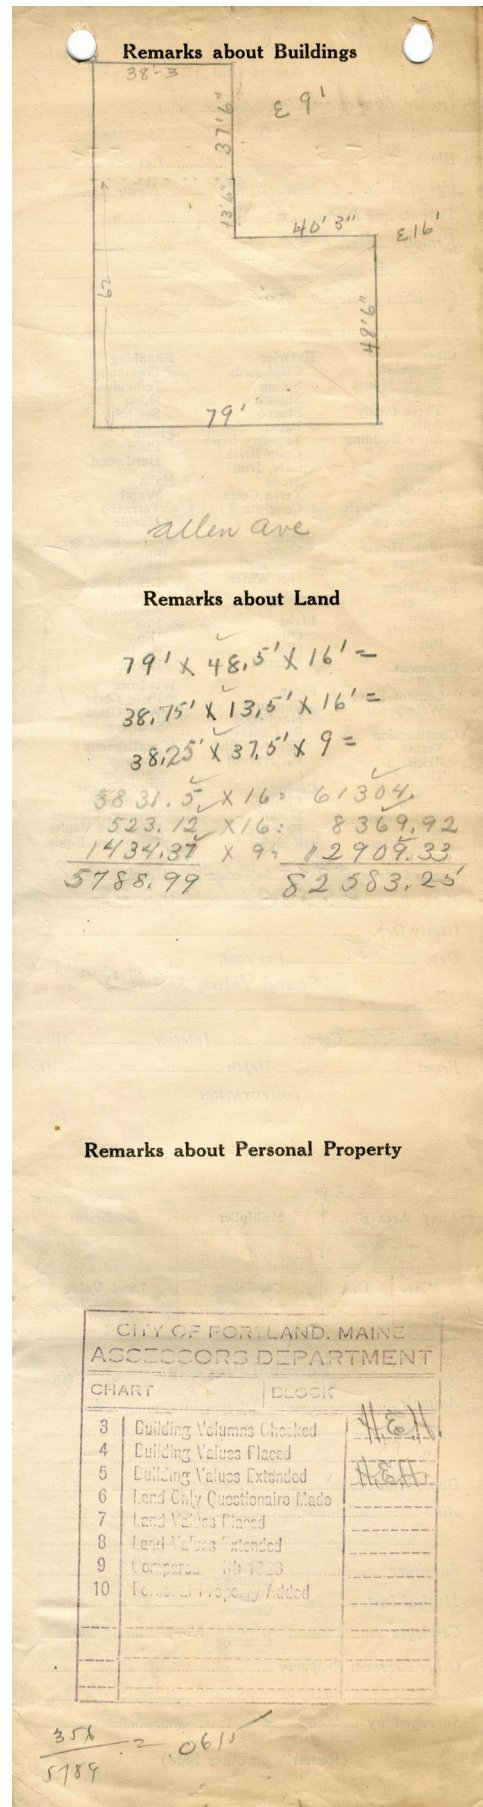 Remarks about Buildings
38'-3
37'6"
ε 9'
13'6"
40' 3"
ε16'
62
48'6"
79'
allen ave
Remarks about Land
79' X 48,5' X 16' =
38,75' X 13,5' X 16' =
38,25' X 37,5' X 9 =
3831.5 X 16 = 61304.
523.12 X 16 : 8369.92
1434.37 X 9 = 12909.33
5788.99 82583.25
Remarks about Personal Property
CITY OF PORTLAND, MAINE
ASSESSORS DEPARTMENT
CHART BLOCK
3 Building Volumns Checked H.E.H.
4 Building Values Placed
5 Building Values Extended H.E.H.
6 Land Only Questionaire Made
7 Land Values Placed
8 Land Values Extended
9 Compared
10 Personal Property Added
356
5789 = .0615